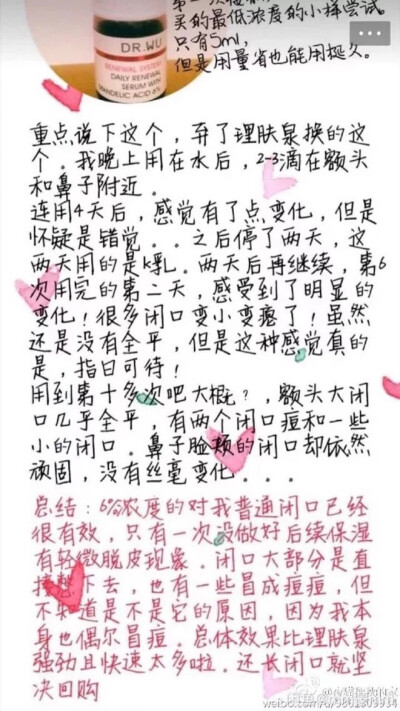 买的最低浓度的小样尝试。
只有5ml,
但是用量省也能用挺久。
DR.WU
RENEWAL SYSTEM
DAILY RENEWAL
SERUM WITH
MANDELIC ACID 6%
重点说下这个，弃了理肤泉换的这
个．我晚上用在水后，2-3滴在额头
和鼻子附近．
连用4天后，感觉有了点变化，但是
怀疑是错觉．．之后停了两天，这
两天用的是k乳．两天后再继续，第6
次用完的第二天，感受到了明显的
变化！很多闭口变小变瘪了！虽然
还是没有全平，但是这种感觉真的
是，指日可待！
用到第十多次吧大概？，额头大闭
口几乎全平，有两个闭口痘和一些
小的闭口．鼻子脸颊的闭口却依然
顽固，没有丝毫变化．．．
总结：6%浓度的对我普通闭口已经
很有效，只有一次没做好后续保湿
有轻微脱皮现象．闭口大部分是直
接憋下去，也有一些冒成痘痘，但
不知道是不是它的原因，因为我本
身也偶尔冒痘．总体效果比理肤泉
强劲且快速太多啦．还长闭口就坚
决回购